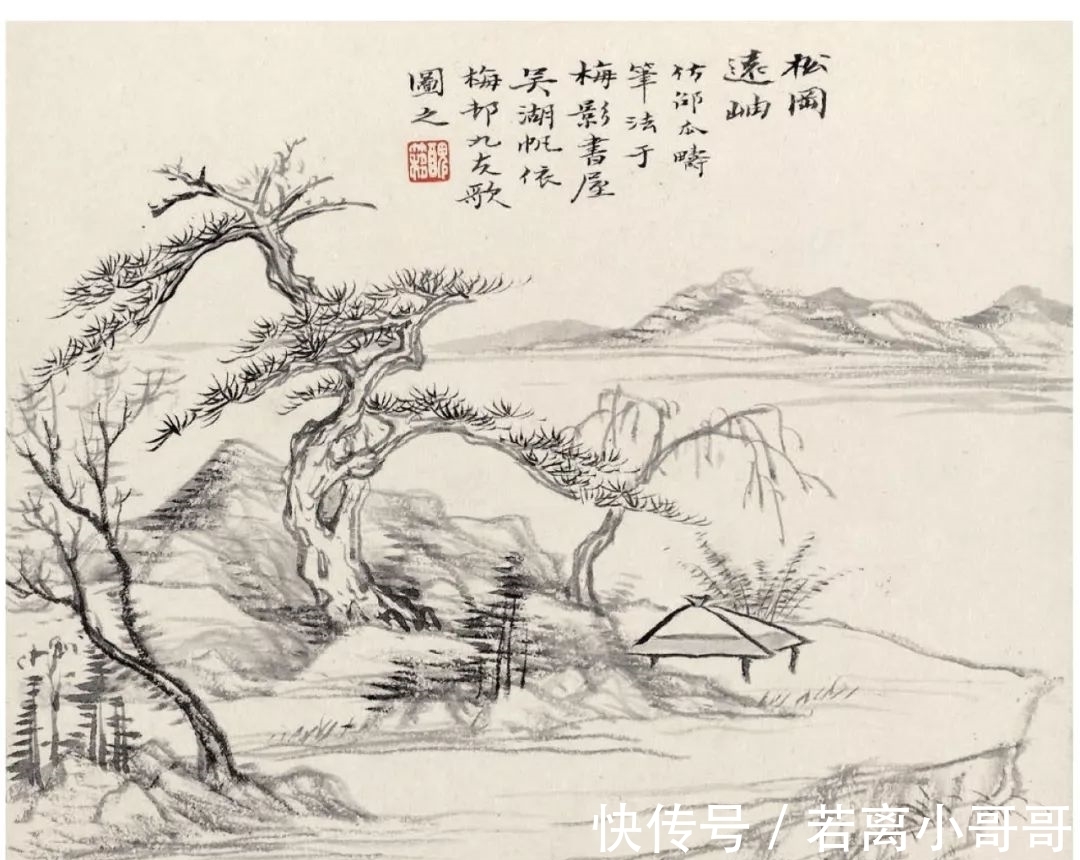 松岡
遠岫
仿邵瓜疇
筆法于
梅影書屋
吴湖帆依
梅邨九友歌
圖之
醜簃
快传号 / 若离小哥哥